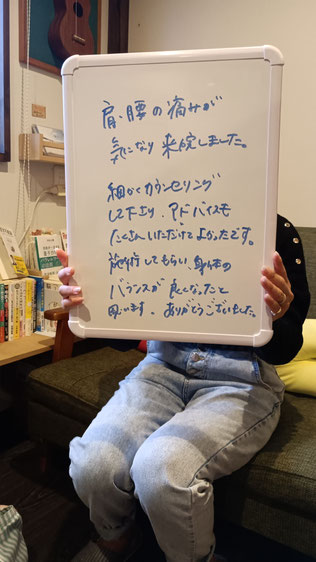 肩、腰の痛みが
気になり来院しました。
細かくカウンセリング
して下さり、アドバイスも
たくさんいただけてよかったです。
施術してもらい、身体の
バランスが良くなったと
思います。ありがとうございました。